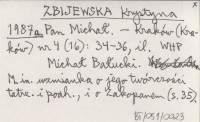 ZBIJEWSKA Krystyna
1987a, Pan Michał. – Kraków (Kra-
ków) nr 4 (16): 34-36, il. WHP
Michał Bałucki.
M. in. wzmianka o jego twórczości
tatrz. i podh., i o Zakopanem (s. 35).